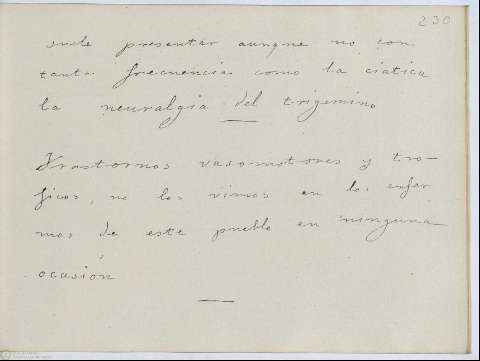 230
suele presentar aunque no con
tanta frecuencia como la ciatica
la neuralgia del trigemino
Trastornos vasomotores y tro-
ficos, no los vimos en los enfer
mos de este pueblo en ninguna
ocasión